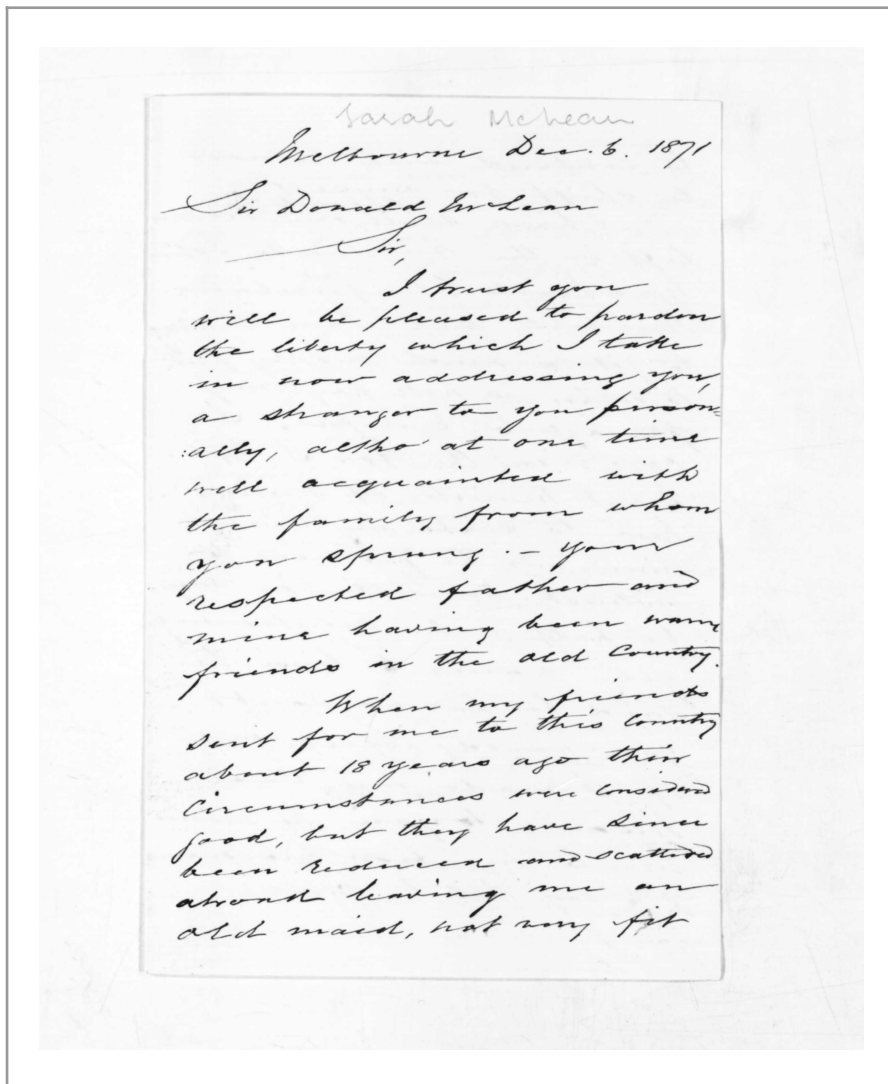 Sarah McLean
Melbourne Dec. 6. 1871
Sir Donald McLean
Sir,
I trust you
will be pleased to pardon
the liberty which I take
in now addressing you,
a stranger to you person=
:ally, altho' at one time
well acquainted with
the family from whom
you sprung. – your
respected father and
mine having been warm
friends in the old Country.
When my friends
sent for me to this Country
about 18 years ago their
Circumstances were considered
good, but they have since
been reduced and scattered
abroad leaving me an
old maid, not very fit